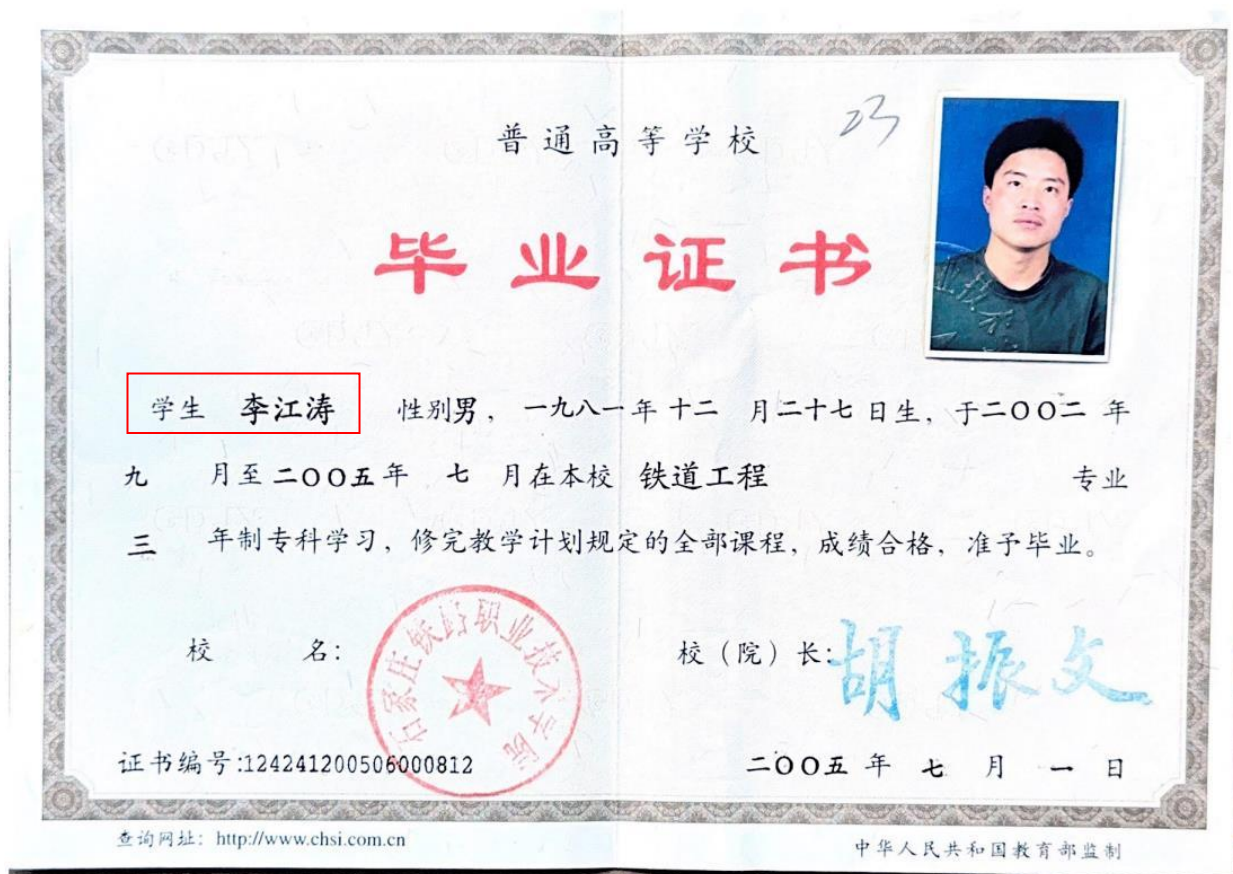 普通高等学校
23
毕业证书
学生 李江涛 性别男，一九八一年十二 月二十七日生，于二〇〇二 年
九 月至二〇〇五年 七 月在本校 铁道工程 专业
三 年制专科学习，修完教学计划规定的全部课程，成绩合格，准予毕业。
校 名：
石家庄铁路职业技术学院
校（院）长：胡振文
证书编号:124241200506000812
二〇〇五 年 七 月 一 日
查询网址：http://www.chsi.com.cn
中华人民共和国教育部监制